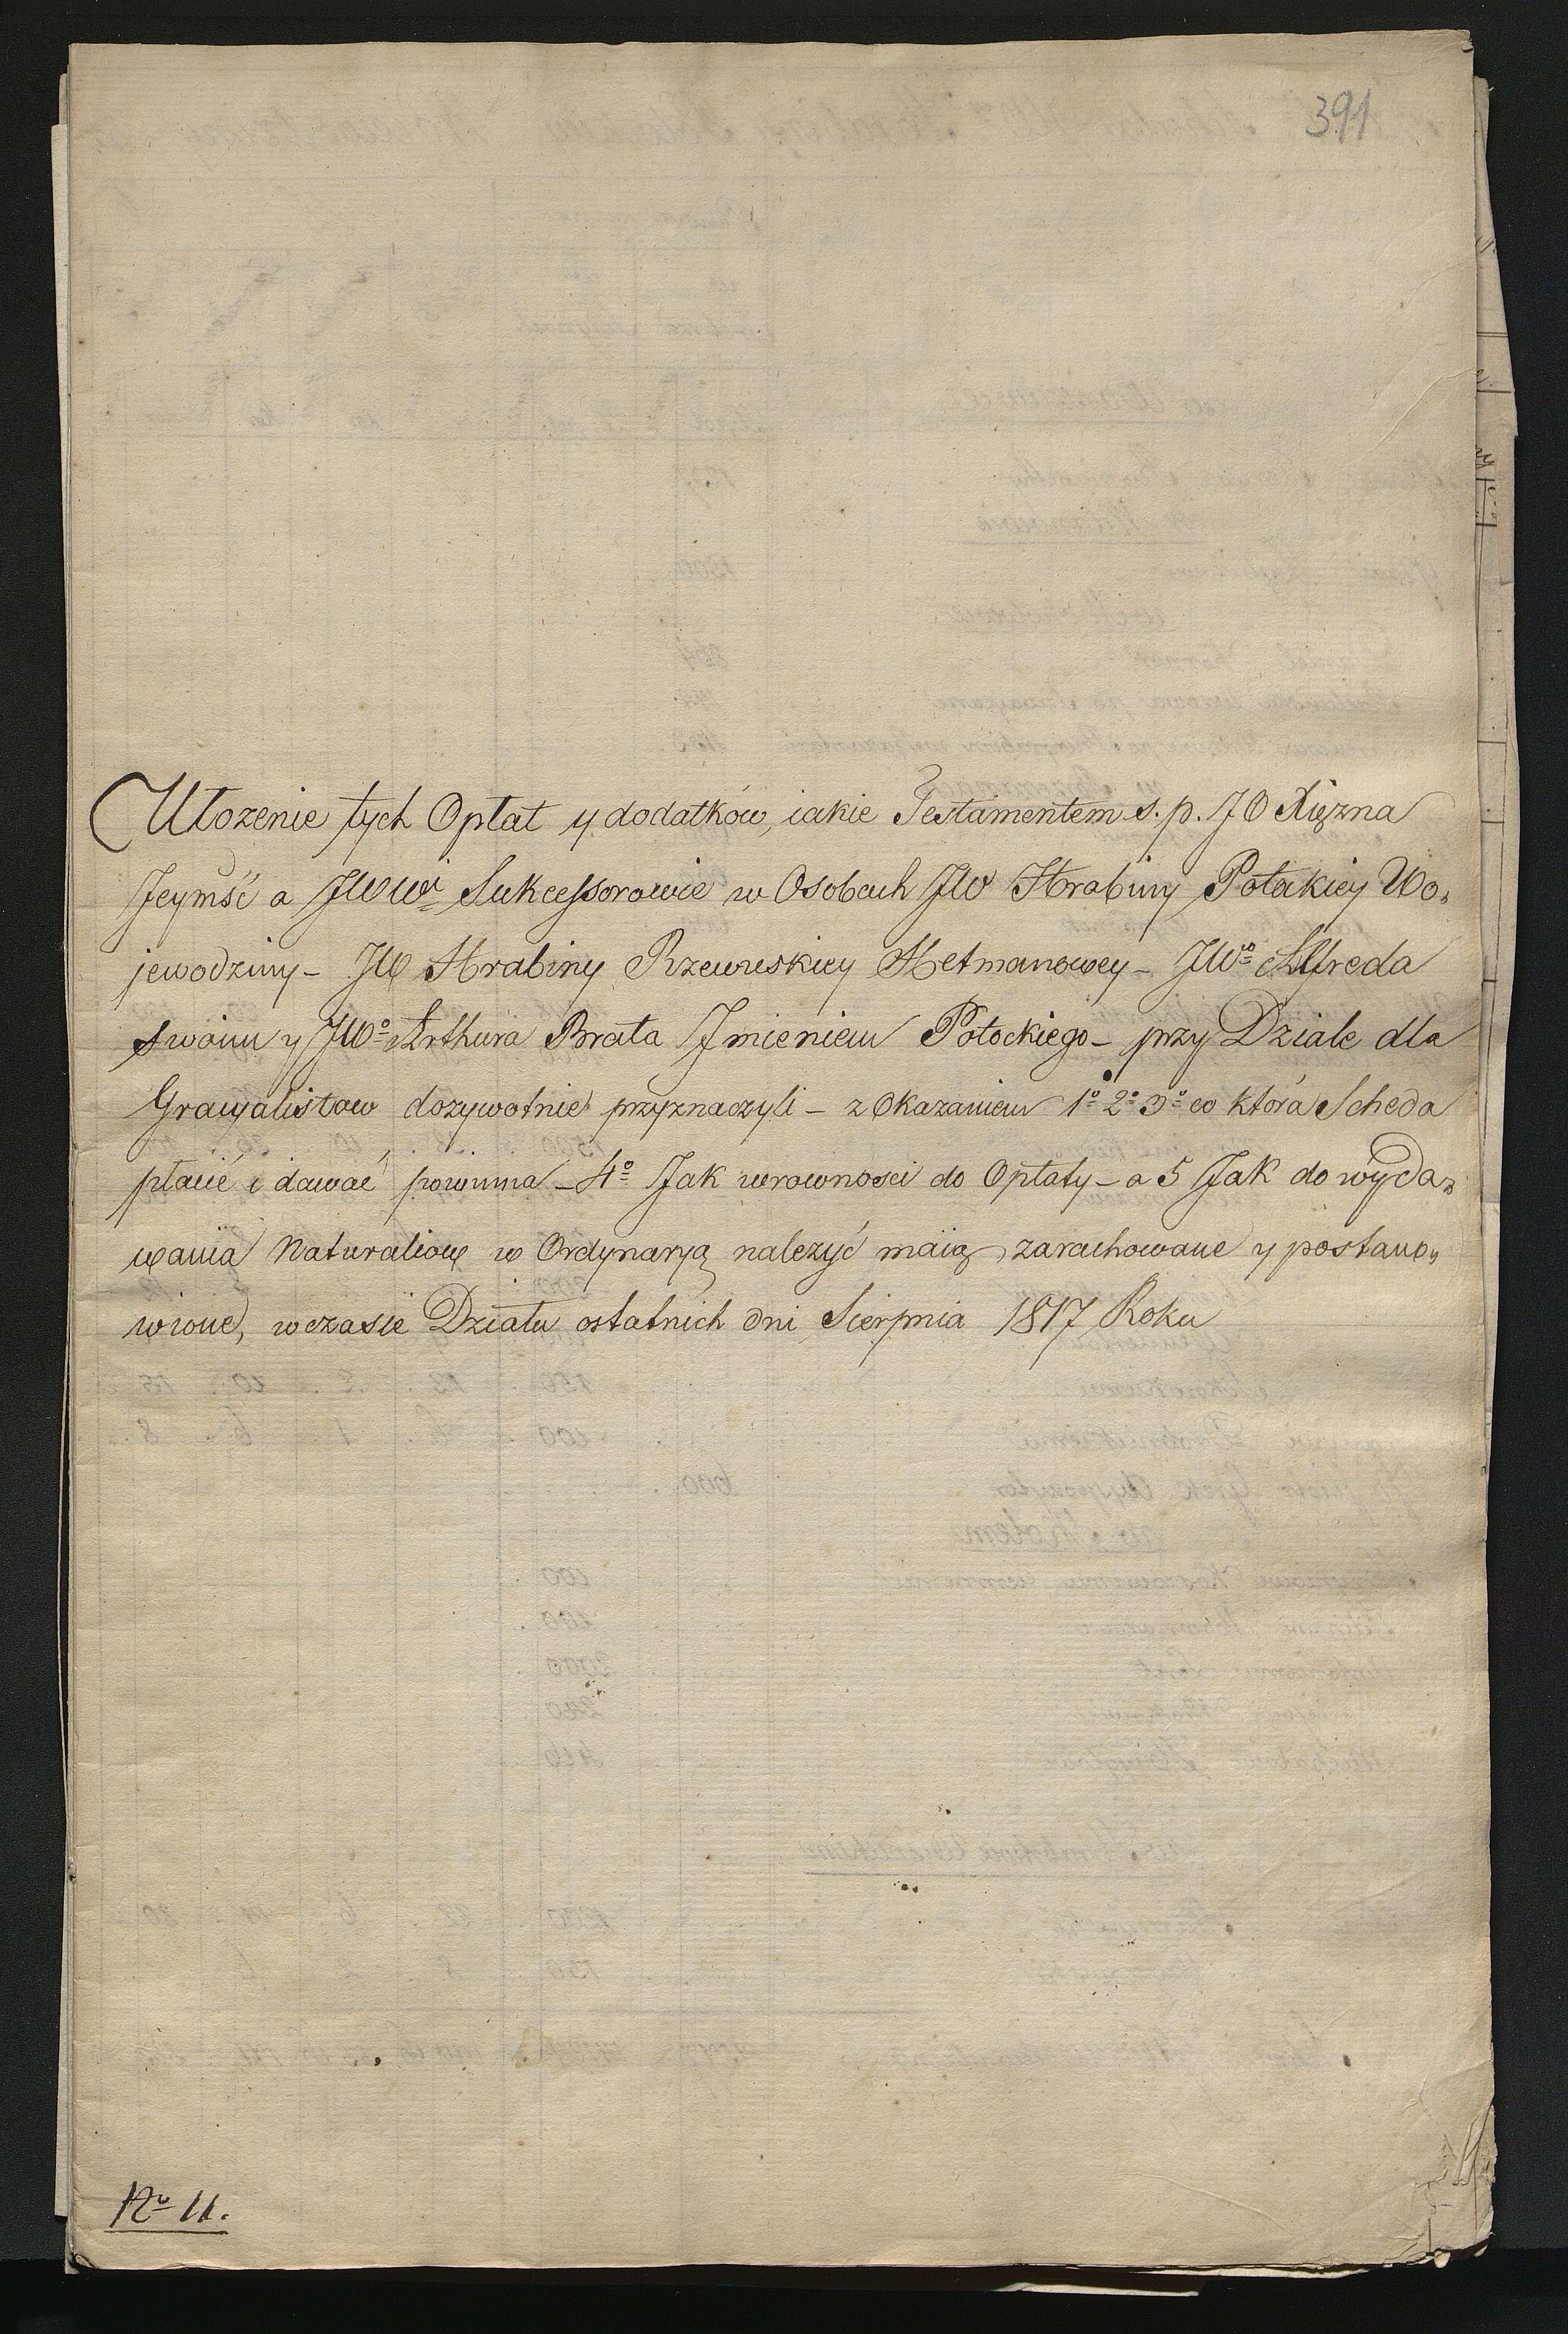 391
Ułozenie tych Opłat y dodatków, iakie Testamentem s. p. JO Xięzna
Jeymść a JWWi Sukcessorowie w Osobach JW Hrabiny Potockiey Wo„
jewodziny – JW Hrabiny Rzewuskiey Hetmanowey – JWo Alfreda
y JWo Arthura Brata Jmieniem Potockiego – przy Dziale dla
Gracyalistow dozywotnie przyznaczyli – z Okazaniem 1o 2o 3o co która Scheda
płacić i dawać powinna – 4o Jak wrownosci do Opłaty – a 5 Jak do wyda„
wania Naturaliow w Ordynaryą nalezyć maią, zarachowane y postano„
wione, wczasie Działu ostatnich dni Sierpnia 1817 Roku
No 11.